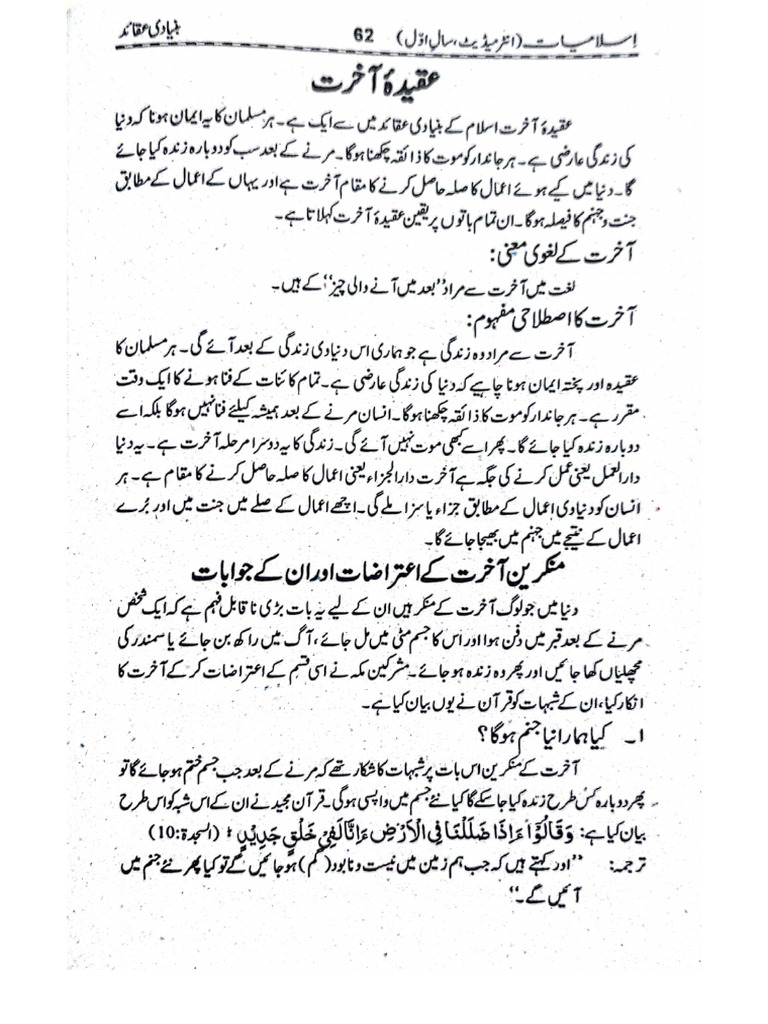 اِسلامیات (انٹرمیڈیٹ، سالِ اوّل) 62 بنیادی عقائد
عقیدۂ آخرت
عقیدۂ آخرت اسلام کے بنیادی عقائد میں سے ایک ہے۔ ہر مسلمان کا یہ ایمان ہونا کہ دنیا
کی زندگی عارضی ہے۔ ہر جاندار کو موت کا ذائقہ چکھنا ہوگا۔ مرنے کے بعد سب کو دوبارہ زندہ کیا جائے
گا۔ دنیا میں کیے ہوئے اعمال کا صلہ حاصل کرنے کا مقام آخرت ہے اور یہاں کے اعمال کے مطابق
جنت و جہنم کا فیصلہ ہوگا۔ ان تمام باتوں پر یقین عقیدۂ آخرت کہلاتا ہے۔
آخرت کے لغوی معنی:
لغت میں آخرت سے مراد ”بعد میں آنے والی چیز“ کے ہیں۔
آخرت کا اصطلاحی مفہوم:
آخرت سے مراد وہ زندگی ہے جو ہماری اس دنیاوی زندگی کے بعد آئے گی۔ ہر مسلمان کا
عقیدہ اور پختہ ایمان ہونا چاہیے کہ دنیا کی زندگی عارضی ہے۔ تمام کائنات کے فنا ہونے کا ایک وقت
مقرر ہے۔ ہر جاندار کو موت کا ذائقہ چکھنا ہوگا۔ انسان مرنے کے بعد ہمیشہ کیلئے فنا نہیں ہوگا بلکہ اسے
دوبارہ زندہ کیا جائے گا۔ پھر اسے کبھی موت نہیں آئے گی۔ زندگی کا یہ دوسرا مرحلہ آخرت ہے۔ یہ دنیا
دارالعمل یعنی عمل کرنے کی جگہ ہے آخرت دارالجزاء یعنی اعمال کا صلہ حاصل کرنے کا مقام ہے۔ ہر
انسان کو دنیاوی اعمال کے مطابق جزاء یا سزا ملے گی۔ اچھے اعمال کے صلے میں جنت میں اور بُرے
اعمال کے نتیجے میں جہنم میں بھیجا جائے گا۔
منکرین آخرت کے اعتراضات اور ان کے جوابات
دنیا میں جو لوگ آخرت کے منکر ہیں ان کے لیے یہ بات بڑی ناقابل فہم ہے کہ ایک شخص
مرنے کے بعد قبر میں دفن ہوا اور اس کا جسم مٹی میں مل جائے، آگ میں راکھ بن جائے یا سمندر کی
مچھلیاں کھا جائیں اور پھر وہ زندہ ہو جائے۔ مشرکین مکہ نے اسی قسم کے اعتراضات کر کے آخرت کا
انکار کیا، ان کے شبہات کو قرآن نے یوں بیان کیا ہے۔
۱۔ کیا ہمارا نیا جنم ہوگا؟
آخرت کے منکرین اس بات پر شبہات کا شکار تھے کہ مرنے کے بعد جب جسم ختم ہو جائے گا تو
پھر دوبارہ کس طرح زندہ کیا جا سکے گا کیا نئے جسم میں واپسی ہوگی۔ قرآن مجید نے ان کے اس شبہ کو اس طرح
بیان کیا ہے: وَقَالُوْٓا ءَاِذَا ضَلَلْنَا فِی الْاَرْضِ ءَاِنَّا لَفِیْ خَلْقٍ جَدِیْدٍ ؕ (السجدۃ:10)
ترجمہ: ”اور کہتے ہیں کہ جب ہم زمین میں نیست و نابود (گم) ہو جائیں گے تو کیا پھر نئے جنم میں
آئیں گے۔“